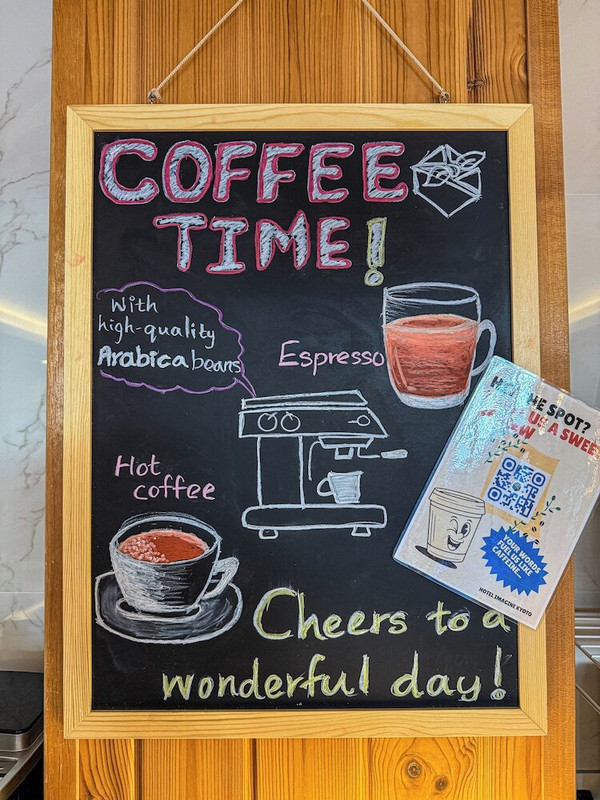 COFFEE
TIME!
With
high-quality
Arabica beans
Espresso
Hot
coffee
Cheers to a
wonderful day!
HE SPOT?
US A SWEE
EW
YOUR WORDS
FUEL US LIKE
CAFFEINE...
HOTEL IMAGINE KYOTO